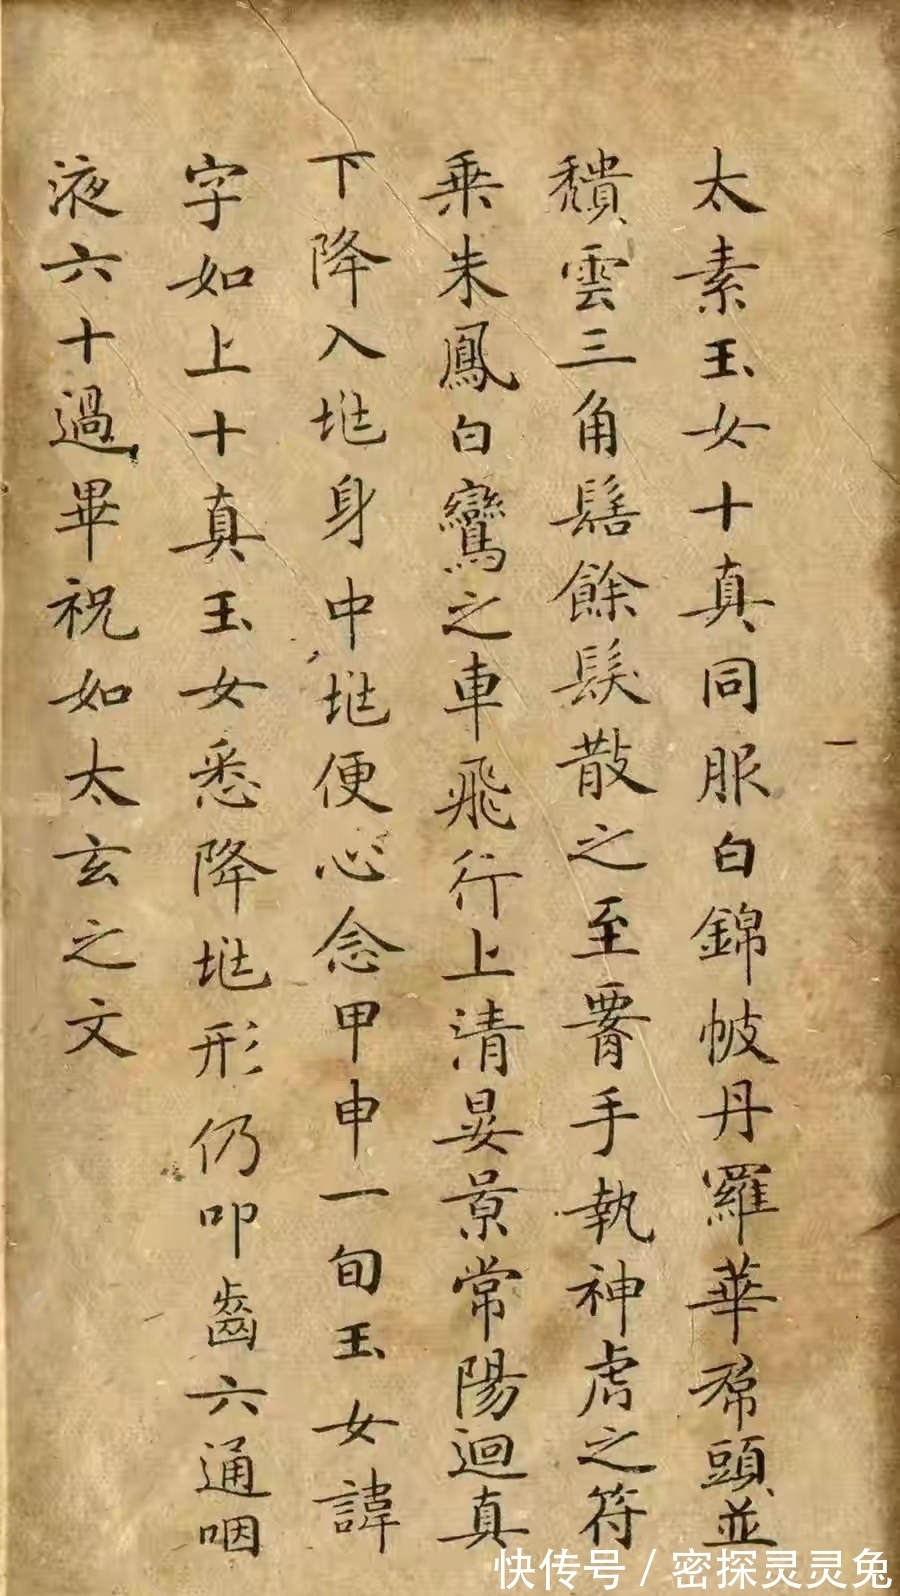 太素玉女十真同服白錦帔丹羅華帬頭並
頹雲三角髻餘髮散之至署手執神虎之符
乘朱鳳白鸞之車飛行上清晏景常陽迴真
下降入兆身中兆便心念甲申一旬玉女諱
字如上十真玉女悉降兆形仍叩齒六通咽
液六十過畢祝如太玄之文
快传号/密探灵灵兔